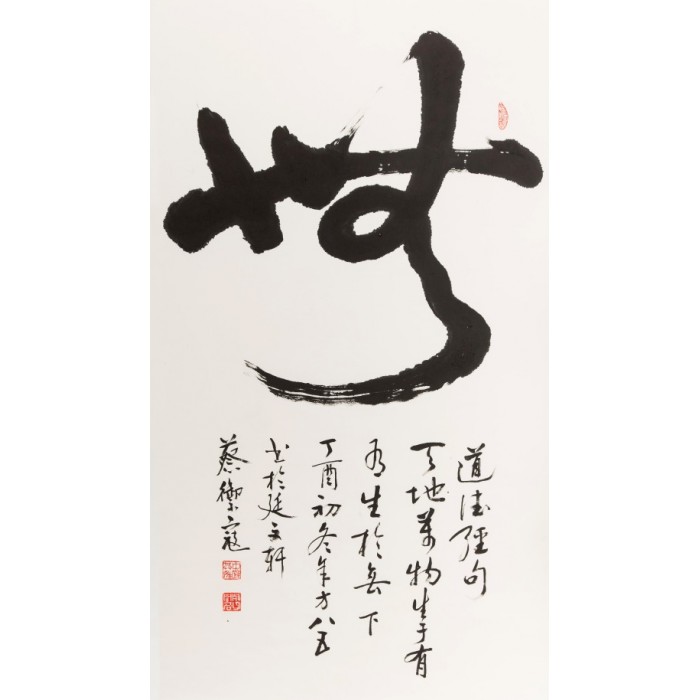 無
道德經句
天地萬物生于有
有生於無 下
丁酉初冬年方八五
書於延文軒
蔡禦寇